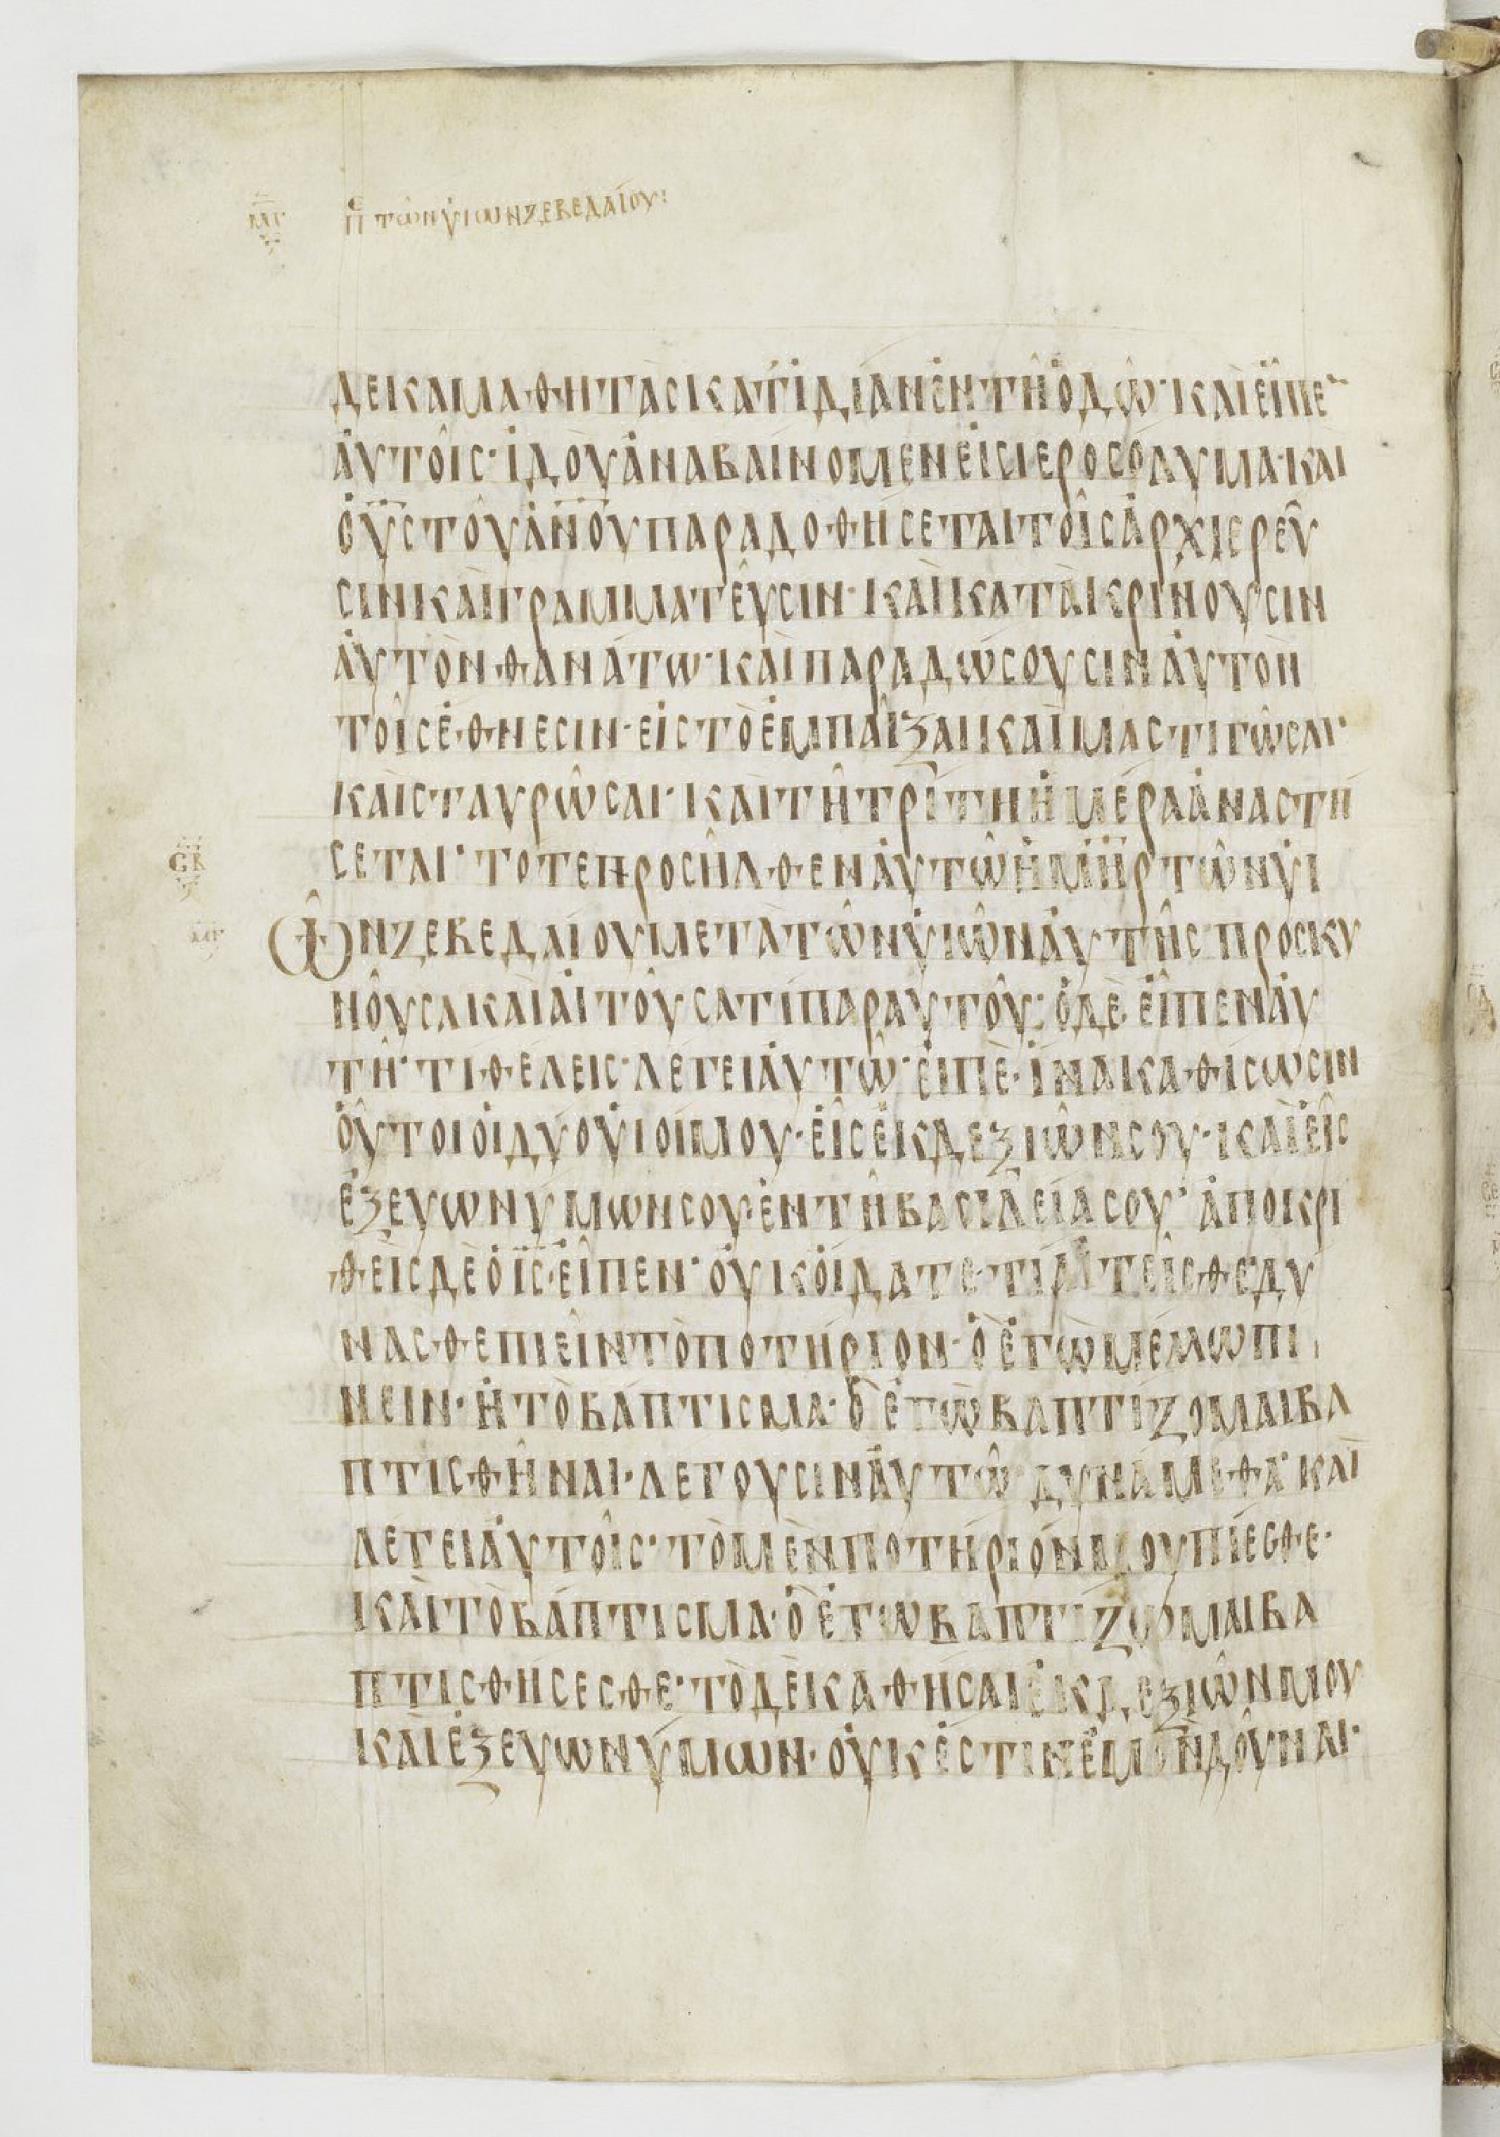 ΜΓ Πε ΤῶΝ ΥἱΩΝ ΖΕΒΕΔΑΊΟΥ:
ΔΕΚΑ ΜΑΘΗΤᾺΣ ΚΑΤ ἸΔΊΑΝ ἘΝ ΤΗ͂ ὉΔΩ͂· ΚΑῚ ΕἾΠΕ
ἈΥΤΟΙ͂Σ· ἸΔΟῪ ἈΝΑΒΑΊΝΟΜΕΝ ἘΙΣ ΙΕΡΟΣΌΛΥΜΑ· ΚΑΙ
Ὁ Υ̅Σ̅ ΤΟΥ͂ Α̅Ν̅Ο̅Υ̅ ΠΑΡΑΔΟΘΉΣΕΤΑΙ ΤΟΙ͂Σ ἈΡΧΙΕΡΕΥ͂
ΣΙΝ ΚΑῚ ΓΡΑΜΜΑΤΕΥ͂ΣΙΝ· ΚΑῚ ΚΑΤΑΙΚΡΙΝΟΥΣΙΝ
ἈΥΤῸΝ ΘΑΝΆΤΩ· ΚΑῚ ΠΑΡΑΔΏΣΟΥΣΙΝ ἈΥΤῸΝ
ΤΟΙ͂Σ ἜΘΝΕΣΙΝ· ΕἸΣ ΤῸ ἘΜΠΑΙ͂ΞΑΙ ΚΑῚ ΜΑΣΤΙΓΩ͂ΣΑΙ·
ΚΑῚ ΣΤΑΥΡΩ͂ΣΑΙ· ΚΑῚ ΤΗ͂ ΤΡΊΤΗ ἩΜΈΡΑ ἈΝΑΣΤΉ
ΣΕΤΑΙ· ΤΟΤΕ ΠΡΟΣΗ͂ΛΘΕΝ ἈΥΤΩ͂ Ἡ Μ̅Η̅Ρ̅ ΤΩ͂Ν ΥἹ
Ω͂Ν ΖΕΒΕΔΑΊΟΥ ΜΕΤᾺ ΤΩ͂Ν ΥἹΩ͂Ν ἈΥΤΗ͂Σ ΠΡΟΣΚΥ
ΝΟΥ͂ΣΑ ΚΑῚ ἈΙΤΟΥ͂ΣΑ ΤΙ ΠΑΡ ΑΥΤΟΥ͂· Ὁ ΔῈ ἘΙ͂ΠΕΝ ἈΥ
ΤΗ͂· ΤΊ ΘΈΛΕΙΣ· ΛΕΓΕΙ ἈΥΤΩ͂· ἘΙΠῈ· ἽΝΑ ΚΑΘΙΣΩΣΙΝ
ὉΥ͂ΤΟΙ ὉΙ ΔΥΟ ΥἹΟΊ ΜΟΥ· ἘΙ͂Σ ἘΚ ΔΕΞΙΩ͂Ν ΣΟΥ· ΚΑῚ ἘΙ͂Σ
ἘΞ ΕΥΩΝΎΜΩΝ ΣΟΥ· ἘΝ ΤΗ͂ ΒΑΣΙΛΕΊΑ ΣΟΥ· ἈΠΟΚΡΙ
ΘΕῚΣ ΔῈ Ὁ Ι̅Σ̅· ἘΙ͂ΠΕΝ· ὈΥΚ ὈΊΔΑΤΕ· ΤΊ ΑΙΤΕΙ͂ΣΘΕ ΔΥ
ΝΑΣΘΕ ΠΙΕΙ͂Ν ΤῸ ΠΟΤΉΡΙΟΝ· Ὃ ἘΓῺ ΜΈΛΛΩ ΠΙ
ΝΕΙΝ· Ἢ ΤῸ ΒΆΠΤΙΣΜΑ· Ὃ ἘΓῺ ΒΑΠΤΙΖΟΜΑΙ ΒΑ
ΠΤΙΣΘΗ͂ΝΑΙ· ΛΕΓΟΥΣΙΝ ἈΥΤΩ͂ ΔΥΝΆΜΕΘΑ· ΚΑῚ
ΛΕΓΕΙ ἈΥΤΟΙ͂Σ· ΤῸ ΜῈΝ ΠΟΤΉΡΙΌΝ ΜΟΥ ΠΊΕΣΘΕ·
ΚΑῚ ΤῸ ΒΆΠΤΙΣΜΑ· Ὃ ἘΓΩ ΒΑΠΤΙΖΩΜΑΙ ΒΑ
ΠΤΙΣΘΉΣΕΣΘΕ· ΤῸ ΔῈ ΚΑΘΗΣΑΙ ἘΚ ΔΕΞΙΩ͂Ν ΜΟΥ
ΚΑῚ ἘΞ ΕΥΩΝΎΜΩΝ· ὈΥΚ ἘΣΤΙΝ ἘΜῸΝ ΔΟΥ͂ΝΑΙ·